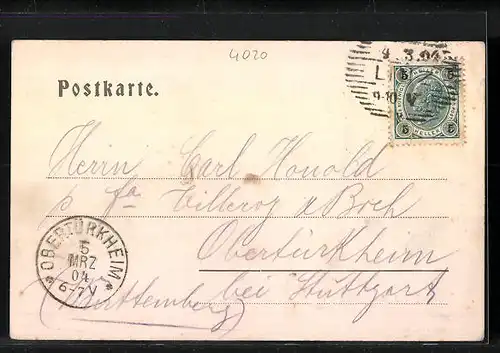 4020
4. 3.04
L
9-10 V
5 5
HELLER
5 5
Postkarte.
Herrn Carl Honold
p fa Villeroy & Boch
Obertürkheim
bei Stuttgart
(Württemberg)
* OBERTÜRKHEIM *
5
MRZ
04
6-7V